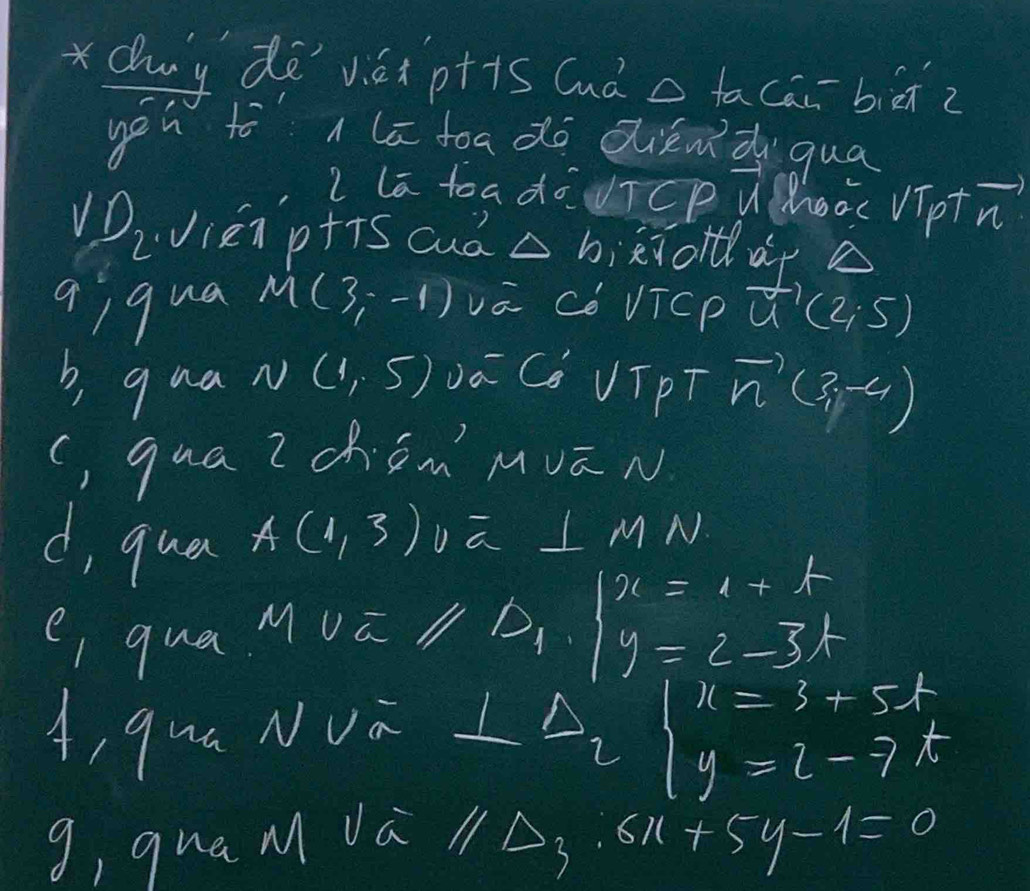 * chú ý để viết ptTS của Δ ta cần biết 2
yếu tố: 1 là toạ độ điểm đi qua
2 là toạ độ VTCP u hoặc VTPT n
VD2. Viết ptTS của Δ biết đt Δ
a, qua M(3; -1) và có VTCP u(2; 5)
b, qua N(1; 5) và có VTPT n(3; -4)
c, qua 2 điểm M và N.
d, qua A(1, 3) và ⊥ MN.
e, qua M và // Δ1. { x = 1 + t
y = 2 - 3t
f, qua N và ⊥ Δ2 { x = 3 + 5t
y = 2 - 7t
g, qua M và // Δ3: 6x + 5y - 1 = 0